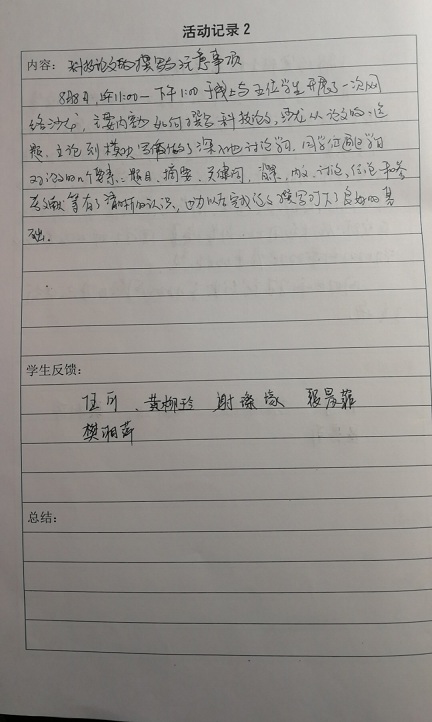 活动记录2
内容: 科技论文的撰写的注意事项
8月8日,上午11:00—下午1:00 于线上与五位学生开展了一次网
络沙龙,主要内容为如何撰写科技论文,沙龙从论文的选
题、立论到模块写作做了深入地讨论学习,同学们通过学习
对论文的八个要素:题目、摘要、关键词、背景、内文、讨论、结论和参
考文献等有了清晰的认识,也为以后完成论文撰写打下了良好的基
础。
学生反馈:
伍 、黄柳玲 谢 缘 程晨菲
樊湘萍
总结: